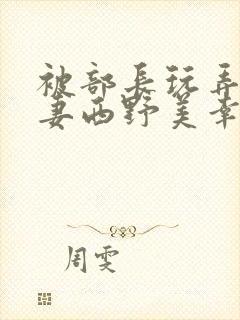 被部長玩弄
妻西野美幸
周雯